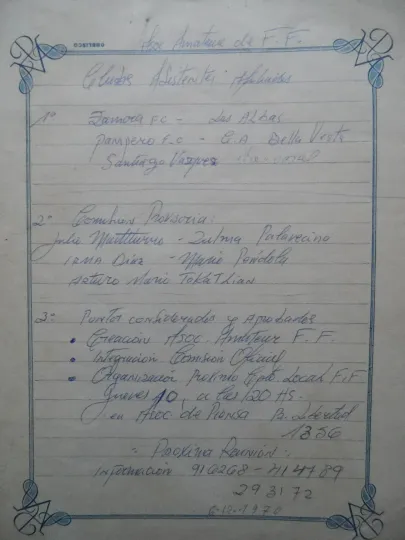 Asoc Amateur de F. F.
Clubes Asistentes Afiliados
1º Zamora F.C - Las Albas
Pampero F.C - G.A Bella Vista
Santiago Vazquez
2º Comision Provisoria:
Julio - Zulma Palavecino
IRMA Diaz - Mario Pendola
Arturo Mario Tokatlian
3º Puntos considerados y Aprobados
• Creacion Asoc. Amateur F. F.
• Integracion Comision Oficial
• Organización Proximo Cpto Local F.F
Jueves 10, a las 20 HS.
en Asoc de Prensa B. Libertad
1356
: Proxima Reunión :
Informacion 916268 - 414789
293172
6-12-1970